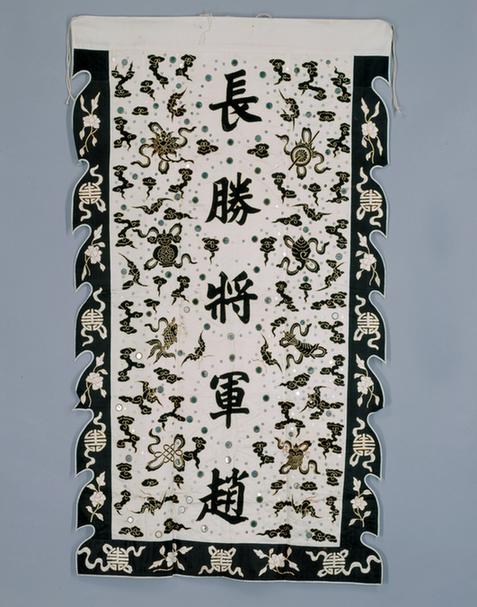 長勝將軍趙